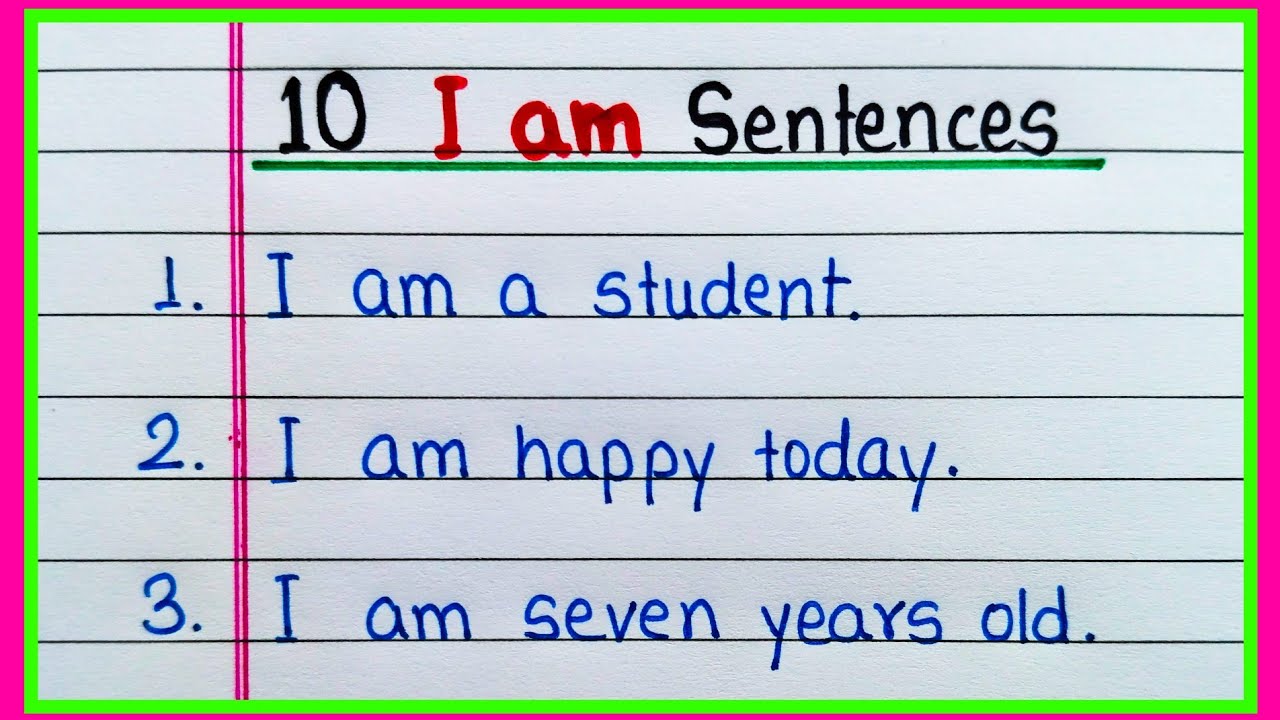 10 I am Sentences
1. I am a student.
2. I am happy today.
3. I am seven years old.